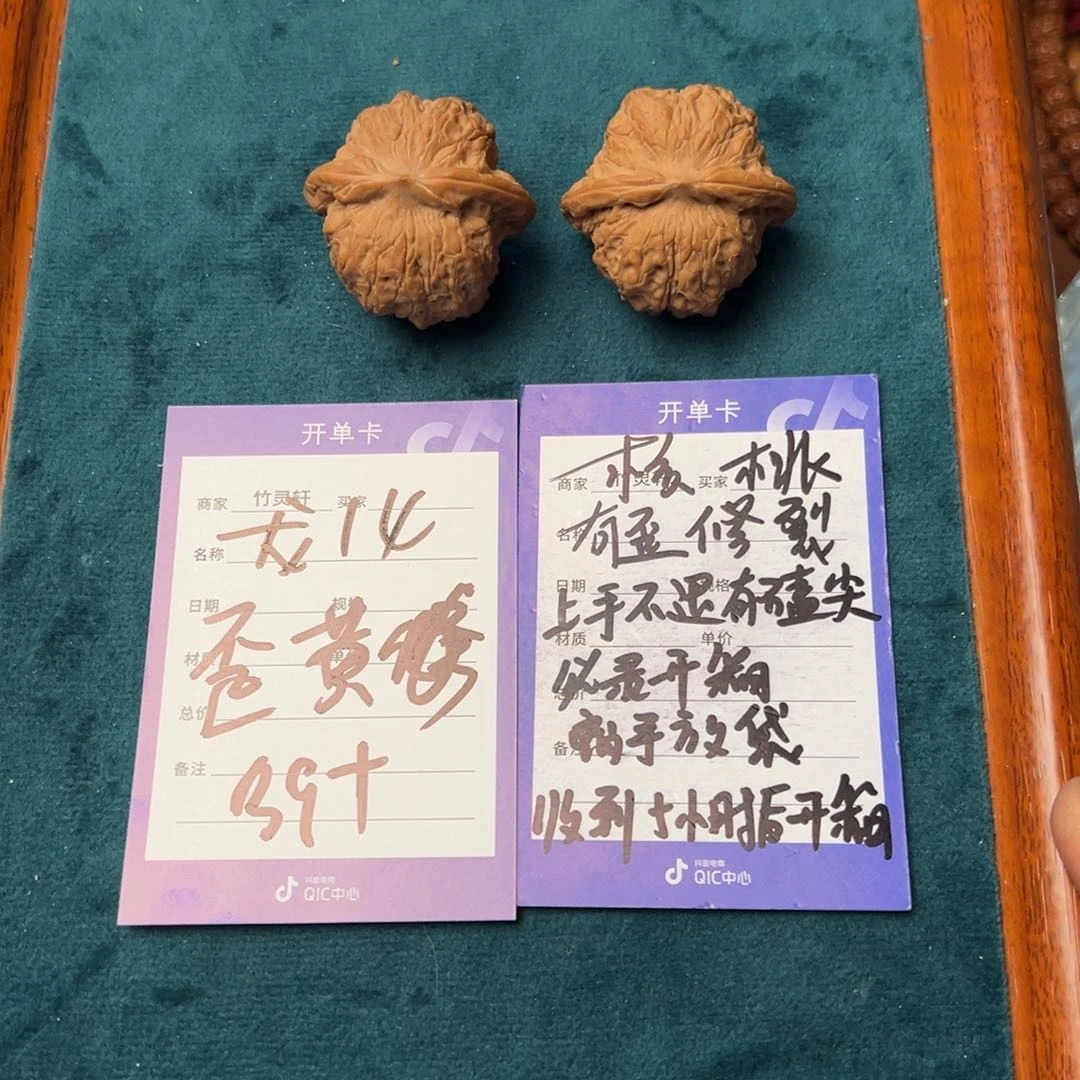 开单卡
商家 竹灵轩 买家
名称 龙14
日期 规格
歪黄修
材质 单价
总价
备注 39+
抖音电商
QIC中心
开单卡
商家 竹灵轩 买家
核桃
名称 有歪修裂
日期 规格
上手不退有磕尖
材质 单价
必录开箱
总价
备注
手放袋
收到十小时后开箱
抖音电商
QIC中心